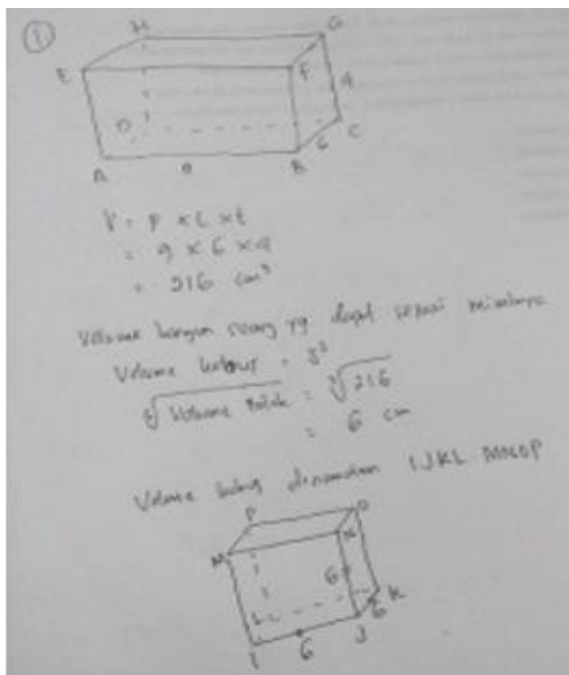 1
H G
E F
4
D C
6
A B
V = P × L × t
= 9 × 6 × 4
= 216 cm³
Volume bangun ruang yg dapat misalnya
Volume kubus = s³
∛Volume balok = ∛216
= 6 cm
Volume kubus dinamakan IJKL.MNOP
P O
M N
6
L K
6
I 6 J